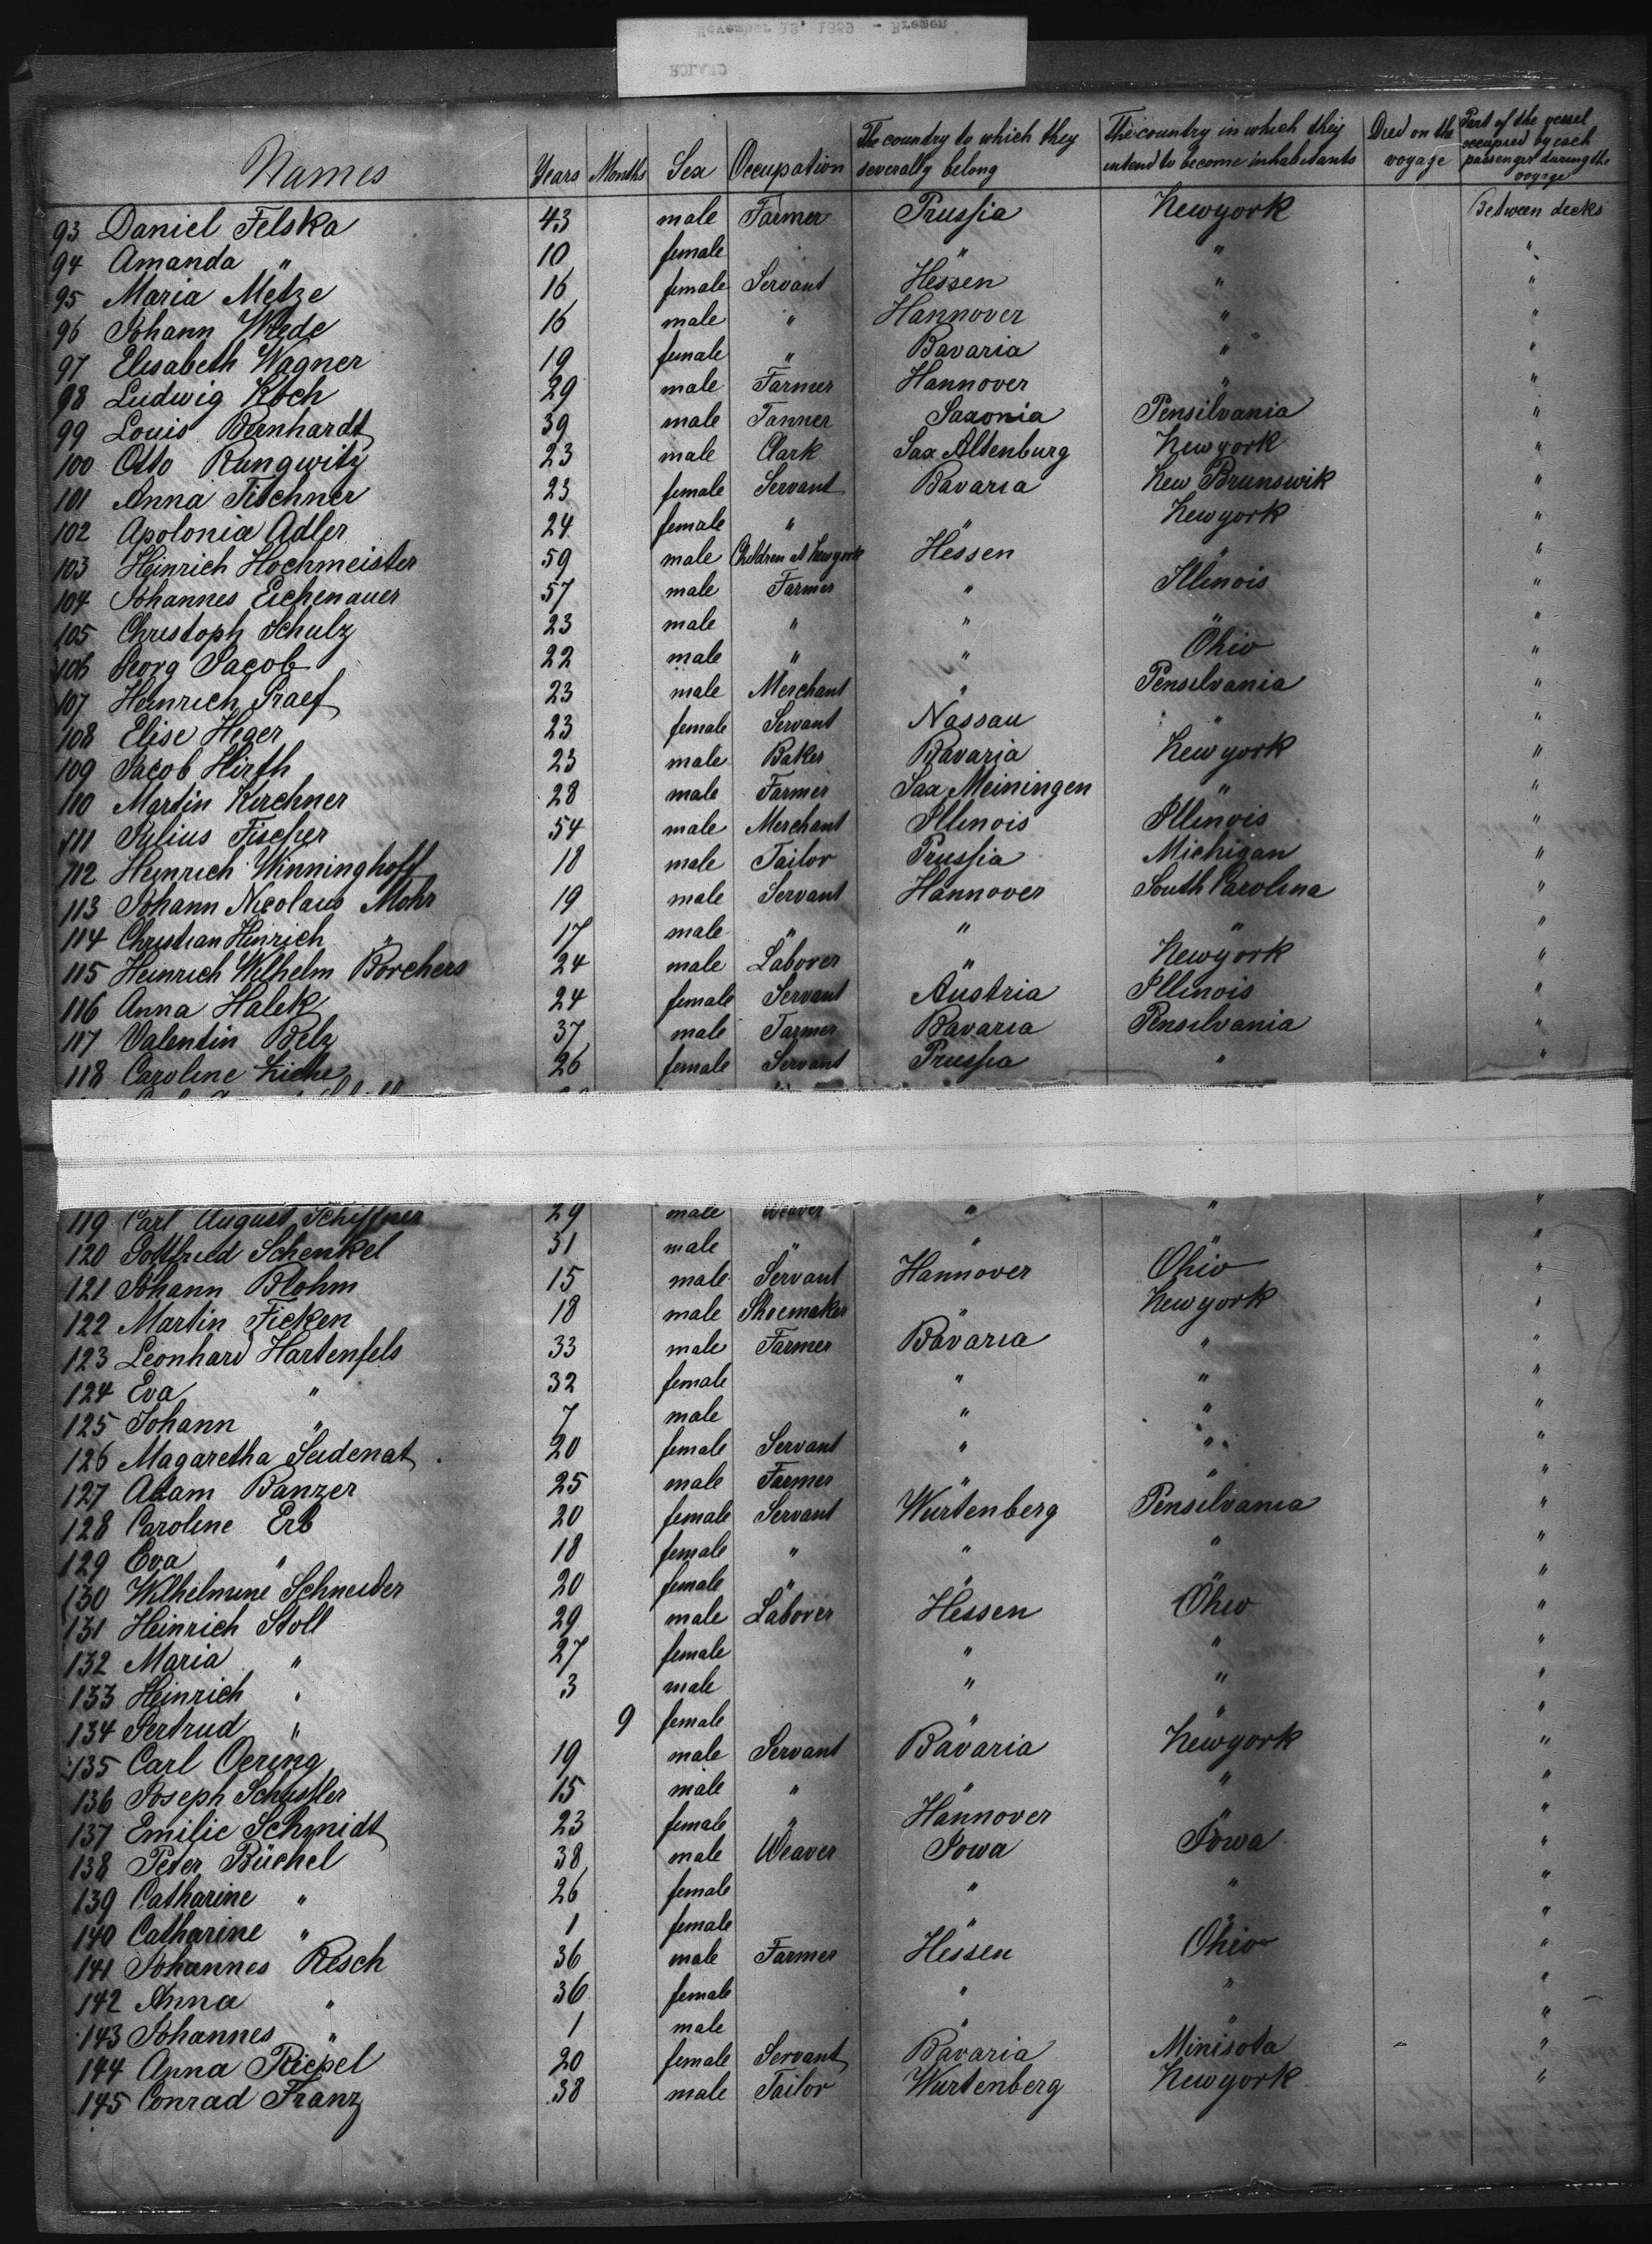 November 18, 1859 - Bremen
ROLAND
Names Years Months Sex Occupation The country to which they severally belong The country in which they intend to become inhabitants Died on the voyage Part of the vessel occupied by each passenger during the voyage
93 Daniel Felska 43 male Farmer Prussia Newyork Between decks
94 Amanda " 10 female " " "
95 Maria Metze 16 female Servant Hessen " "
96 Johann Wrede 16 male " Hannover " "
97 Elisabeth Wagner 19 female " Bavaria " "
98 Ludwig Koch 29 male Farmer Hannover " "
99 Louis Bernhardt 39 male Tanner Saxonia Pensilvania "
100 Otto Rungwitz 23 male Clark Sax Altenburg Newyork "
101 Anna Tischner 23 female Servant Bavaria New Brunswik "
102 Apolonia Adler 24 female " " Newyork "
103 Heinrich Hochmeister 59 male Children at Newyork Hessen " "
104 Johannes Eichenauer 57 male Farmer " Illinois "
105 Christoph Schulz 23 male " " " "
106 Georg Jacob 22 male " " Ohio "
107 Heinrich Graef 23 male Merchant " Pensilvania "
108 Elise Heger 23 female Servant Nassau " "
109 Jacob Hirth 23 male Baker Bavaria Newyork "
110 Martin Kirchner 28 male Farmer Sax Meiningen " "
111 Julius Fischer 54 male Merchant Illinois Illinois "
112 Heinrich Winninghoff 18 male Tailor Prussia Michigan "
113 Johann Nicolaus Mohr 19 male Servant Hannover South Carolina "
114 Christian Heinrich " 17 male " " " "
115 Heinrich Wilhelm Borchers 24 male Laborer " Newyork "
116 Anna Halek 24 female Servant Austria Illinois "
117 Valentin Belz 37 male Farmer Bavaria Pensilvania "
118 Caroline 26 female Servant Prussia " "
119 Carl August Schiffner 29 male Weaver " " "
120 Gottfried Schenkel 31 male " " " "
121 Johann Blohm 15 male Servant Hannover Ohio "
122 Martin Ficken 18 male Shoemaker " Newyork "
123 Leonhard Hartenfels 33 male Farmer Bavaria " "
124 Eva " 32 female " " "
125 Johann " 7 male " " "
126 Magaretha Seidenat 20 female Servant " " "
127 Adam Banzer 25 male Farmer " " "
128 Caroline Erb 20 female Servant Würtenberg Pensilvania "
129 Eva " 18 female " " " "
130 Wilhelmine Schneider 20 female " " " "
131 Heinrich Stoll 29 male Laborer Hessen Ohio "
132 Maria " 27 female " " "
133 Heinrich " 3 male " " "
134 Gertrud " 9 female " " "
135 Carl Oering 19 male Servant Bavaria Newyork "
136 Joseph Schussler 15 male " " " "
137 Emilie Schmidt 23 female " Hannover " "
138 Peter Büchel 38 male Weaver Iowa Iowa "
139 Catharine " 26 female " " "
140 Catharine " 1 female " " "
141 Johannes Resch 36 male Farmer Hessen Ohio "
142 Anna " 36 female " " "
143 Johannes " 1 male " " "
144 Anna Rickel 20 female Servant Bavaria Minisota "
145 Conrad Franz 38 male Tailor Würtenberg Newyork "